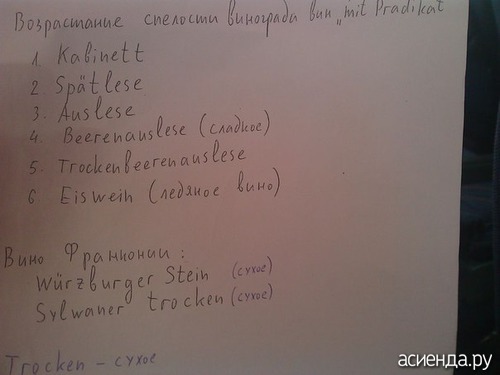 Возрастание спелости винограда вин „mit Prädikat
1 Kabinett
2. Spätlese
3. Auslese
4. Beerenauslese (сладкое)
5. Trockenbeerenauslese
6 Eiswein (ледяное вино)
Вино Франконии :
Würzburger Stein (сухое)
Sylwaner trocken (сухое)
Trocken - сухое
асиенда.ру